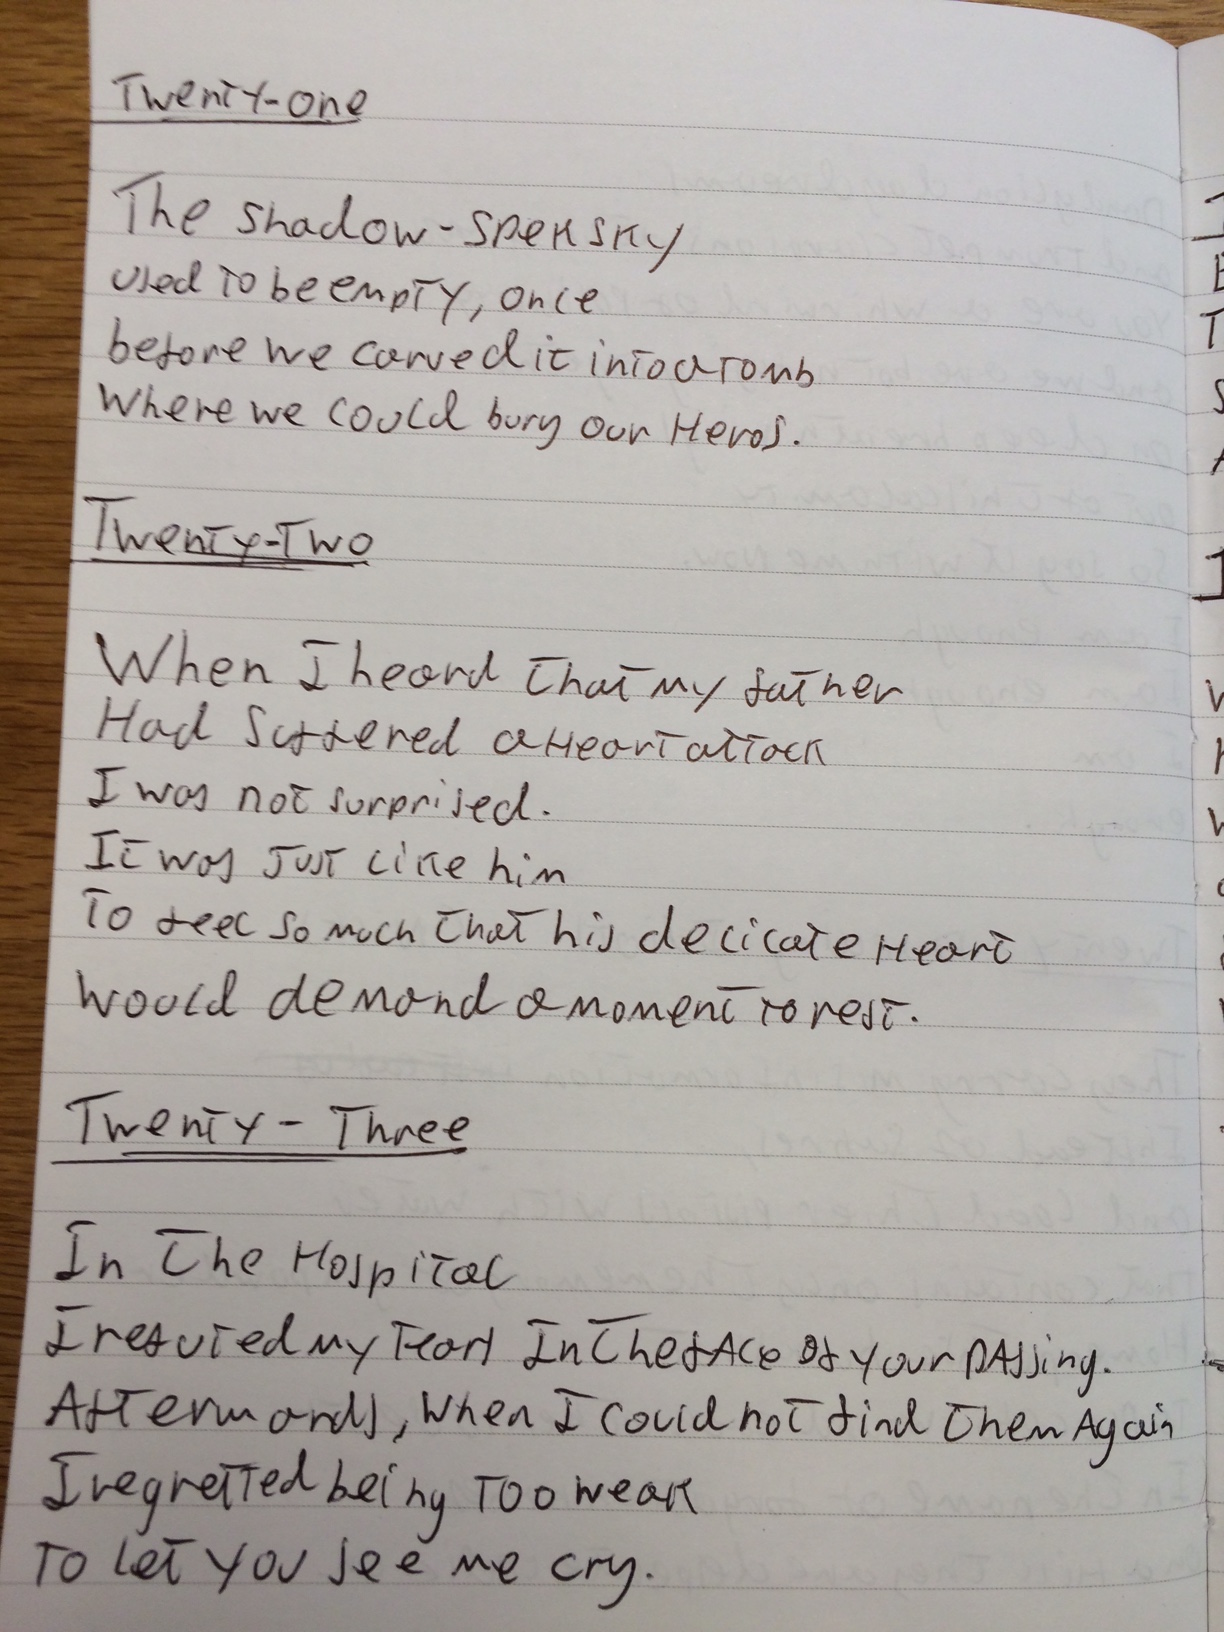 Twenty-one
The shadow-speck sky
used to be empty, once
before we carved it into a tomb
Where we could bury our Heros.
Twenty-Two
When I heard that my father
Had Suffered a Heart attack
I was not surprised.
It was Just like him
To feel so much that his delicate Heart
Would demand a moment to rest.
Twenty-Three
In The Hospital
I refused my tears In the fAce of your pAssing.
Afterwards, when I could not find them Again
I regretted being Too weak
To let you see me cry.